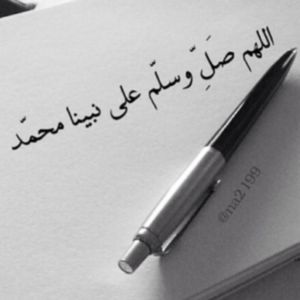 اللهم صَلِّ وسلّم على نبينا محمّد
@na2199